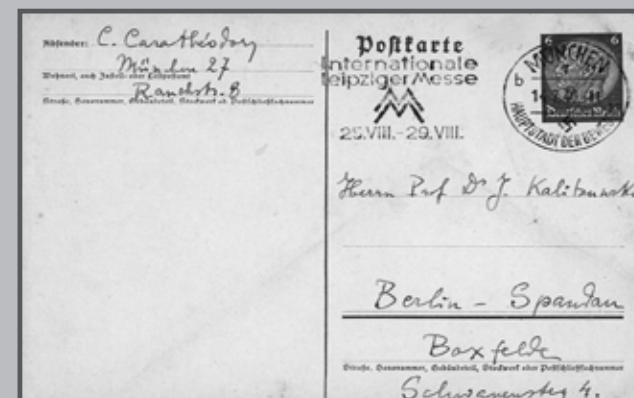 Absender: C. Carathéodory
München 27
Wohnort, auch Zustell- oder Leitpostamt
Rauchstr. 8
Straße, Hausnummer, Gebäudeteil, Stockwerk od. Postschließfachnummer
Postkarte
Internationale
Leipziger Messe
25.VIII.-29.VIII.
6 6
MÜNCHEN
b
HAUPTSTADT DER BEWEG
Deutsches Reich
Herrn Prof Dr J.
Berlin - Spandau
Boxfelde
Straße, Hausnummer, Gebäudeteil, Stockwerk oder Postschließfachnummer
Schwanensteg 4.